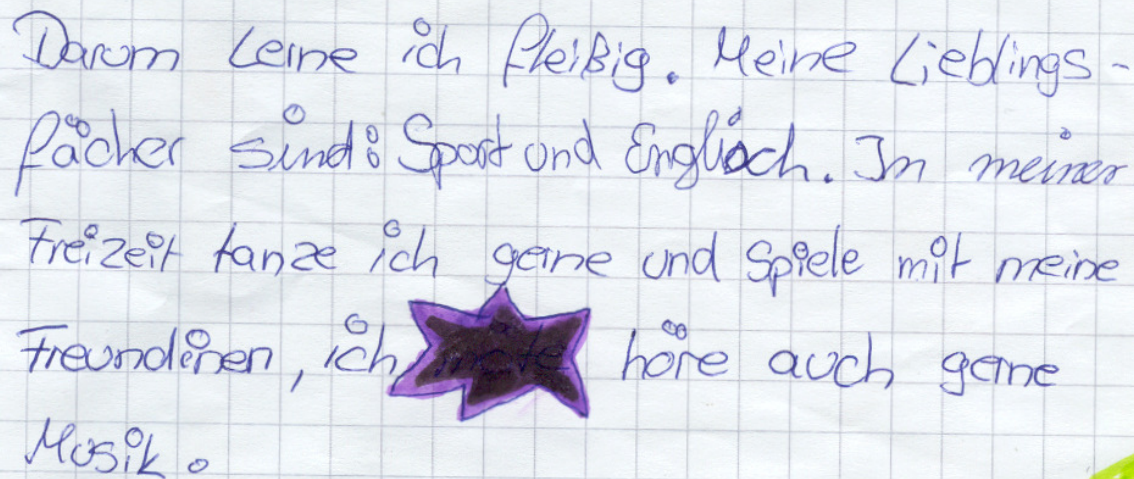 Darum lerne ich fleißig. Meine Lieblings-
fächer sind: Sport und Englisch. In meiner
Freizeit tanze ich gerne und Spiele mit meine
Freundinen, ich höre auch gerne
Musik.